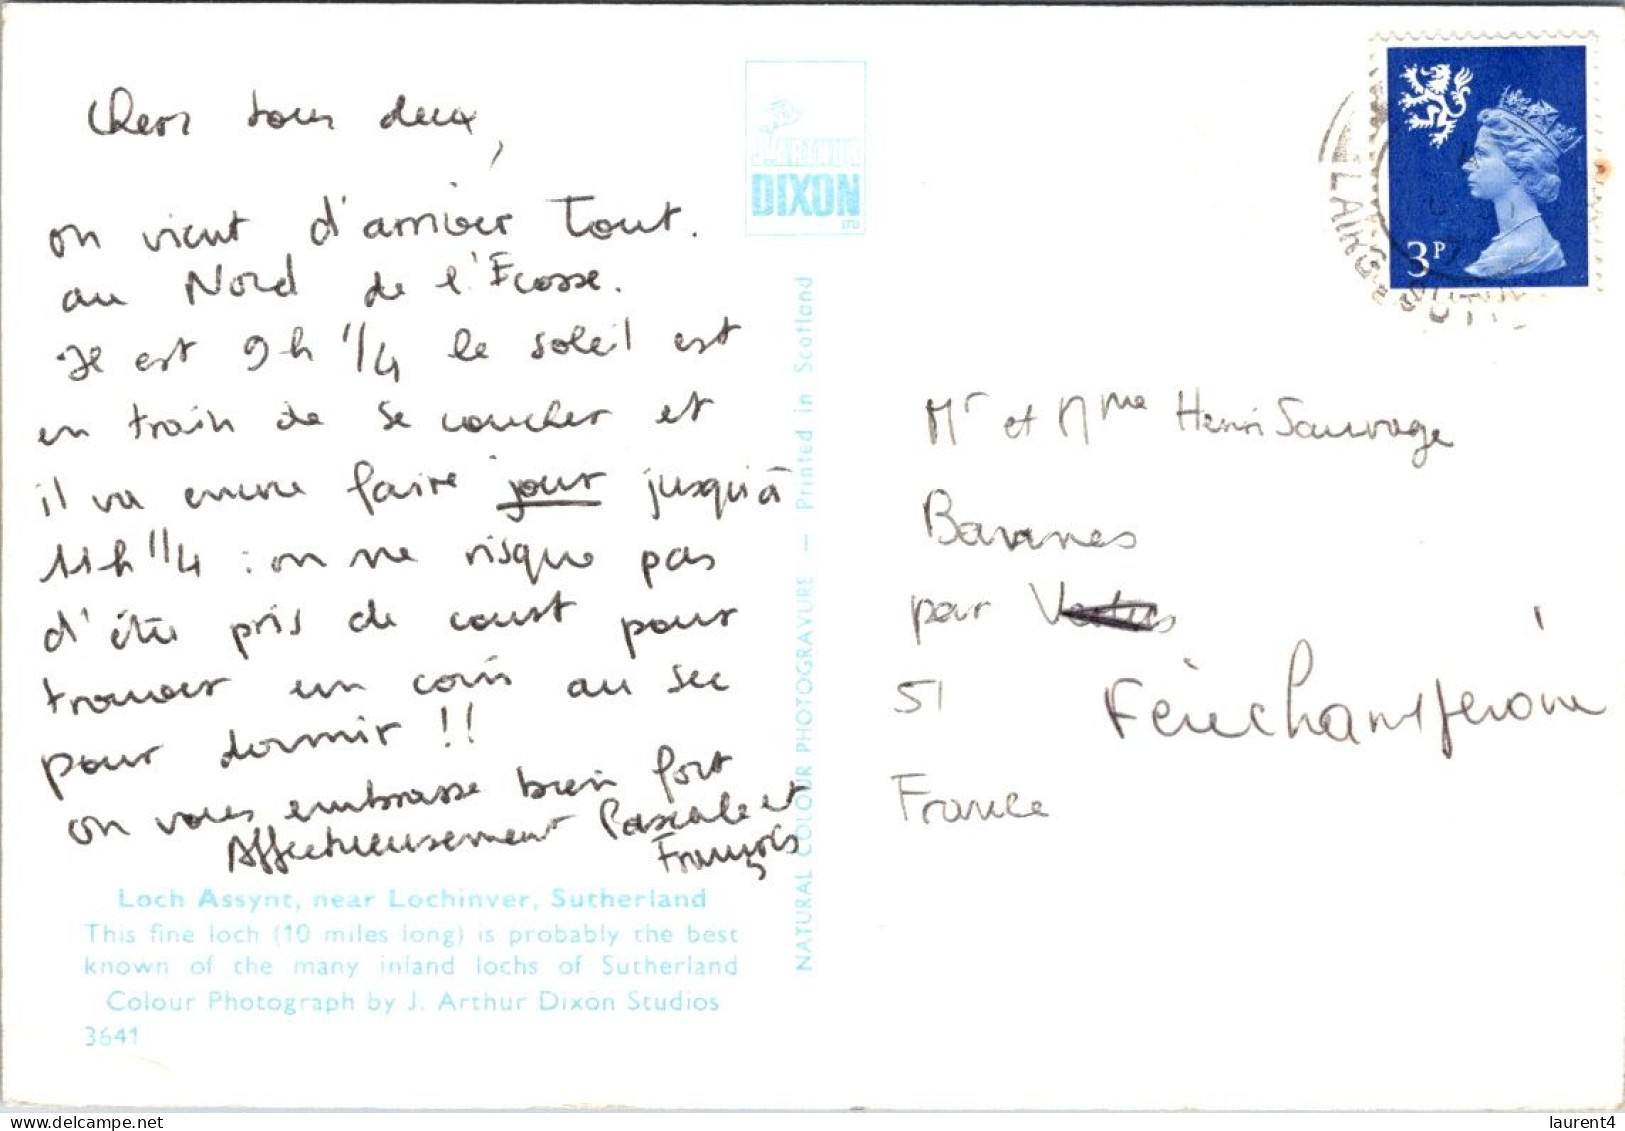 Chers tous deux,
on vient d'arriver Tout.
au Nord de l'Ecosse.
Il est 9h 1/4 le soleil est
en train de se coucher et
il va encore faire jour jusqu'à
11h 1/4 : on ne risque pas
d'être pris de court pour
trouver un coin au sec
pour dormir !!
on vous embrasse bien fort
Affectueusement Pascale et
François
Loch Assynt, near Lochinver, Sutherland
This fine loch (10 miles long) is probably the best
known of the many inland lochs of Sutherland
Colour Photograph by J. Arthur Dixon Studios
3641
J. ARTHUR
DIXON
LTD
NATURAL COLOUR PHOTOGRAVURE — Printed in Scotland
3P
LAIRG
Mr et Mme Henri Sauvage
Bannes
par
51 Fèrechampenoise
France
laurent4